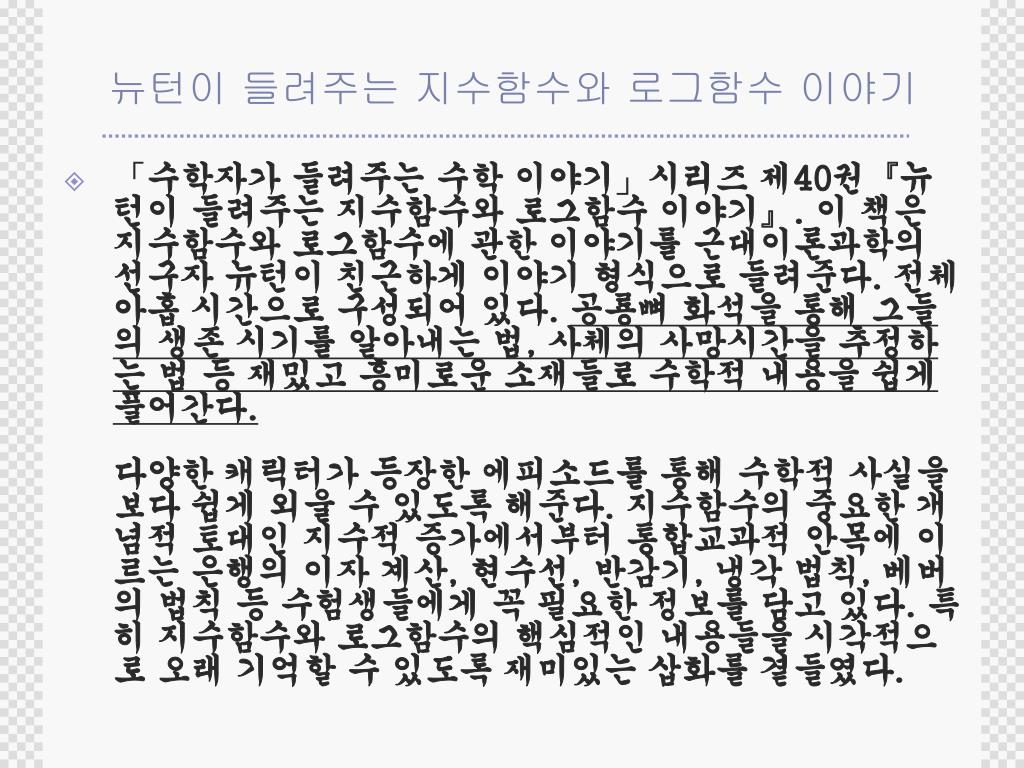 뉴턴이 들려주는 지수함수와 로그함수 이야기
「수학자가 들려주는 수학 이야기」시리즈 제40권 『뉴
턴이 들려주는 지수함수와 로그함수 이야기』. 이 책은
지수함수와 로그함수에 관한 이야기를 근대이론과학의
선구자 뉴턴이 친근하게 이야기 형식으로 들려준다. 전체
아홉 시간으로 구성되어 있다. 공룡뼈 화석을 통해 그들
의 생존 시기를 알아내는 법, 사체의 사망시간을 추정하
는 법 등 재밌고 흥미로운 소재들로 수학적 내용을 쉽게
풀어간다.
다양한 캐릭터가 등장한 에피소드를 통해 수학적 사실을
보다 쉽게 외울 수 있도록 해준다. 지수함수의 중요한 개
념적 토대인 지수적 증가에서부터 통합교과적 안목에 이
르는 은행의 이자 계산, 현수선, 반감기, 냉각 법칙, 베버
의 법칙 등 수험생들에게 꼭 필요한 정보를 담고 있다. 특
히 지수함수와 로그함수의 핵심적인 내용들을 시각적으
로 오래 기억할 수 있도록 재미있는 삽화를 곁들였다.